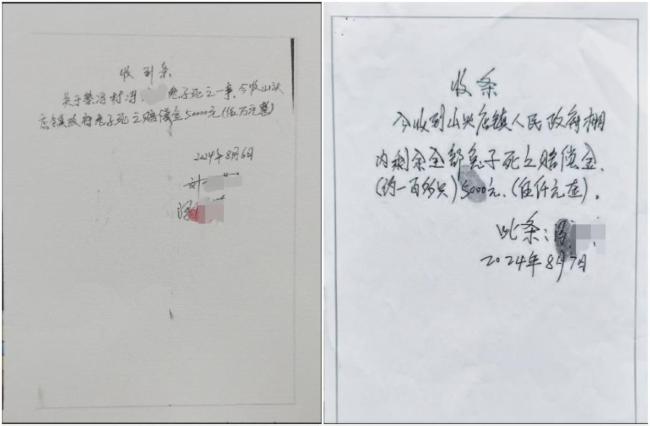 收到条
关于蔡冯村冯 兔子死之一案,今收山头
店镇政府兔子死之赔偿金50000元(伍万元整)
2024年8月6日
收条
今收到山头店镇人民政府棚
内剩余全部兔子死之赔偿金.
(约一百多只)5000元.(伍仟元连).
此条:
2024年8月7日